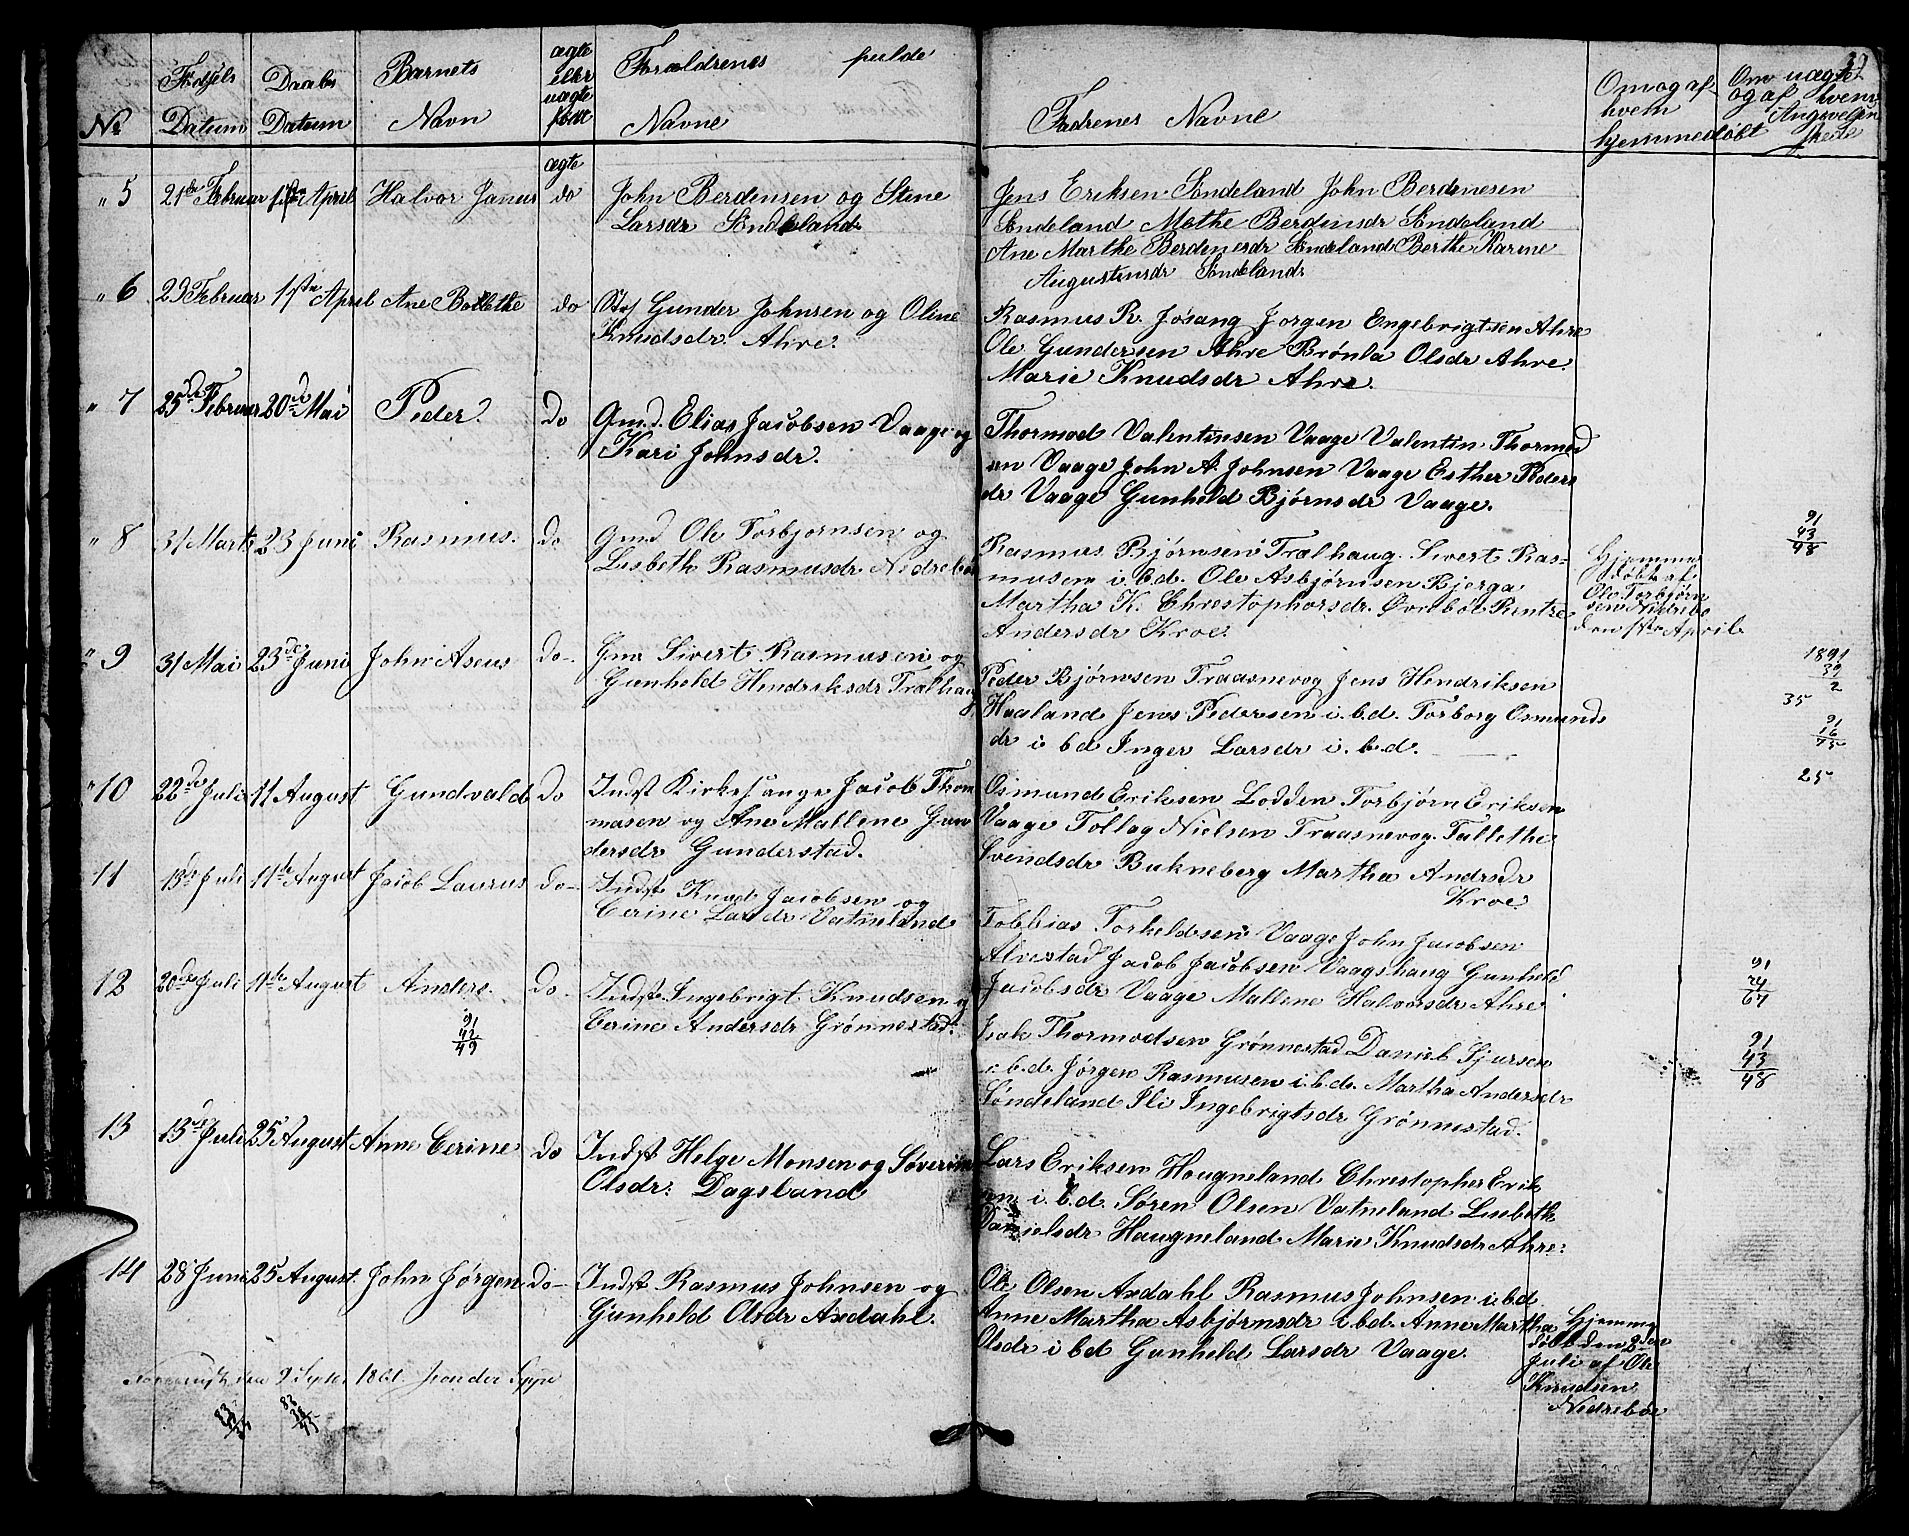 No
Fødsels
Datum
Daabs
Datum
Barnets
Navn
ægte
eller
uægte
født
Forældrenes fulde
Navne
Fadrenes Navne
Om og af
hvem
hjemmedøbt
Om uægte
og af hvem
Angivelsen
skede
" 5 21de Februar April Halvor Janus ægte do
John Berdensen og Stine
Larsdr Søndeland
Jens Eriksen Søndeland John Berdinesen
Søndeland Mathe Berdinsdr Søndeland
Ane Marthe Berdinesdr Søndeland Berthe Karine
Augustinsdr Søndeland
" 6 29 Februar 1ste April Ane Bollethe do
Gunder Johnsen og Oline
Knudsdr Ahre.
Rasmus R. Josang Jorgen Engebrigtsen Ahre
Ole Gundersen Ahre Brønla Olsdr Ahre
Marie Knudsdr Ahre.
" 7 25de Februar 20de Mai Peder. do
Gmd. Elias Jacobsen Vaage og
Kari Johnsdr.
Thormod Valentinsen Vaage Valentin Thormod
sen Vaage John A. Johnsen Vaage Esther Peders
dr Vaage Gunheld Bjørnsdr Vaage.
" 8 31 Marts 23 Juni Rasmus. do
Gmd Ole Torbjornsen og
Lisbeth Rasmusdr Nedrebøe
Rasmus Bjørnsen Trælhaug. Sivert Ras-
musen i. b.d. Ole Asbjørnsen Bjerga
Martha K. Chrestophorsdr. Øvrebøe
Andersdr Kroe.
Hjemme
døbt af
Ole Torbjørn
sen Nedrebø
den 1ste April
91
43
48
" 9 31 Mai 23de Juni John Aseus do
Gmd Sivert Rasmusen og
Gunheld Hendriksdr Trælhaug
Peder Bjørnsen Traasnevog Jens Hendriksen
Haaland Jens Pedersen i. b.d. Torborg Osmunds
dr i bd Inger Larsdr i. b.d.
1891
39
2
35
91
16
75
" 10 22de Juli 11 August Gundvald do
Indst Kirkesanger Jacob Thom
masen og Ane Mallene Gun
dersdr Gunderstad.
Osmund Eriksen Lodden Torbjørn Eriksen
Vaage Tollag Nielsen Traasnevog. Tallethe
Svendsdr Bukneberg Martha Andrsdr
Kroe
25
11 13de Juli 11te August Jacob Laurus do
Indst Knud Jacobsen og
Cerine Larsdr Vatneland
Tobbias Torkeldsen Vaage John Jacobsen
Alvestad Jacob Jacobsen Vaagshaug Gunheld
Jacobsdr Vaage Mallene Halvorsdr Ahre
12 20de Juli 11te August Anders. do
Indst Ingebrigt Knudsen og
Cerine Andersdr Grønnestad.
91
42
49
Isak Thormodsen Grønnestad Daniel Sjursen
i. b.d. Jørgen Rasmusen i. b.d. Martha Andersdr
Søndeland Ili Ingebrigtsdr Grønnestad.
91
24
67
91
43
48
13 13de Juli 25 August Anne Cerine do
Indst Helge Monsen og Søverine
Olsdr: Dagsland
Lars Eriksen Hougneland Chrestopher Erik
sen i. b.d. Søren Olsen Vatneland Lisebeth
Danielsdr Haugneland Marie Knudsdr Ahre:
14 28 Juni 25 August. John Jørgen do
Indst Rasmus Johnsen og
Gunheld Olsdr Axdahl.
Ole Olsen Axdahl Rasmus Johnsen i. b.d
Anne Martha Asbjørnsdr i. b.d. Anne Martha
Olsdr i bd Gunheld Larsdr Vaage.
Hjemme
døbt den 2den
Juli af Ole
Knudsen
Nedrebøe
den 9 Septbr
83
38
45